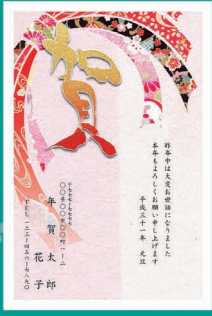 賀
昨年中は大変お世話になりました
本年もよろしくお願い申し上げます
平成三十一年 元旦
〒七七七-七七七七
〇〇県〇〇市〇〇町一-一-二
年賀 太郎
花子
TEL 一二三-四五六-七八九〇